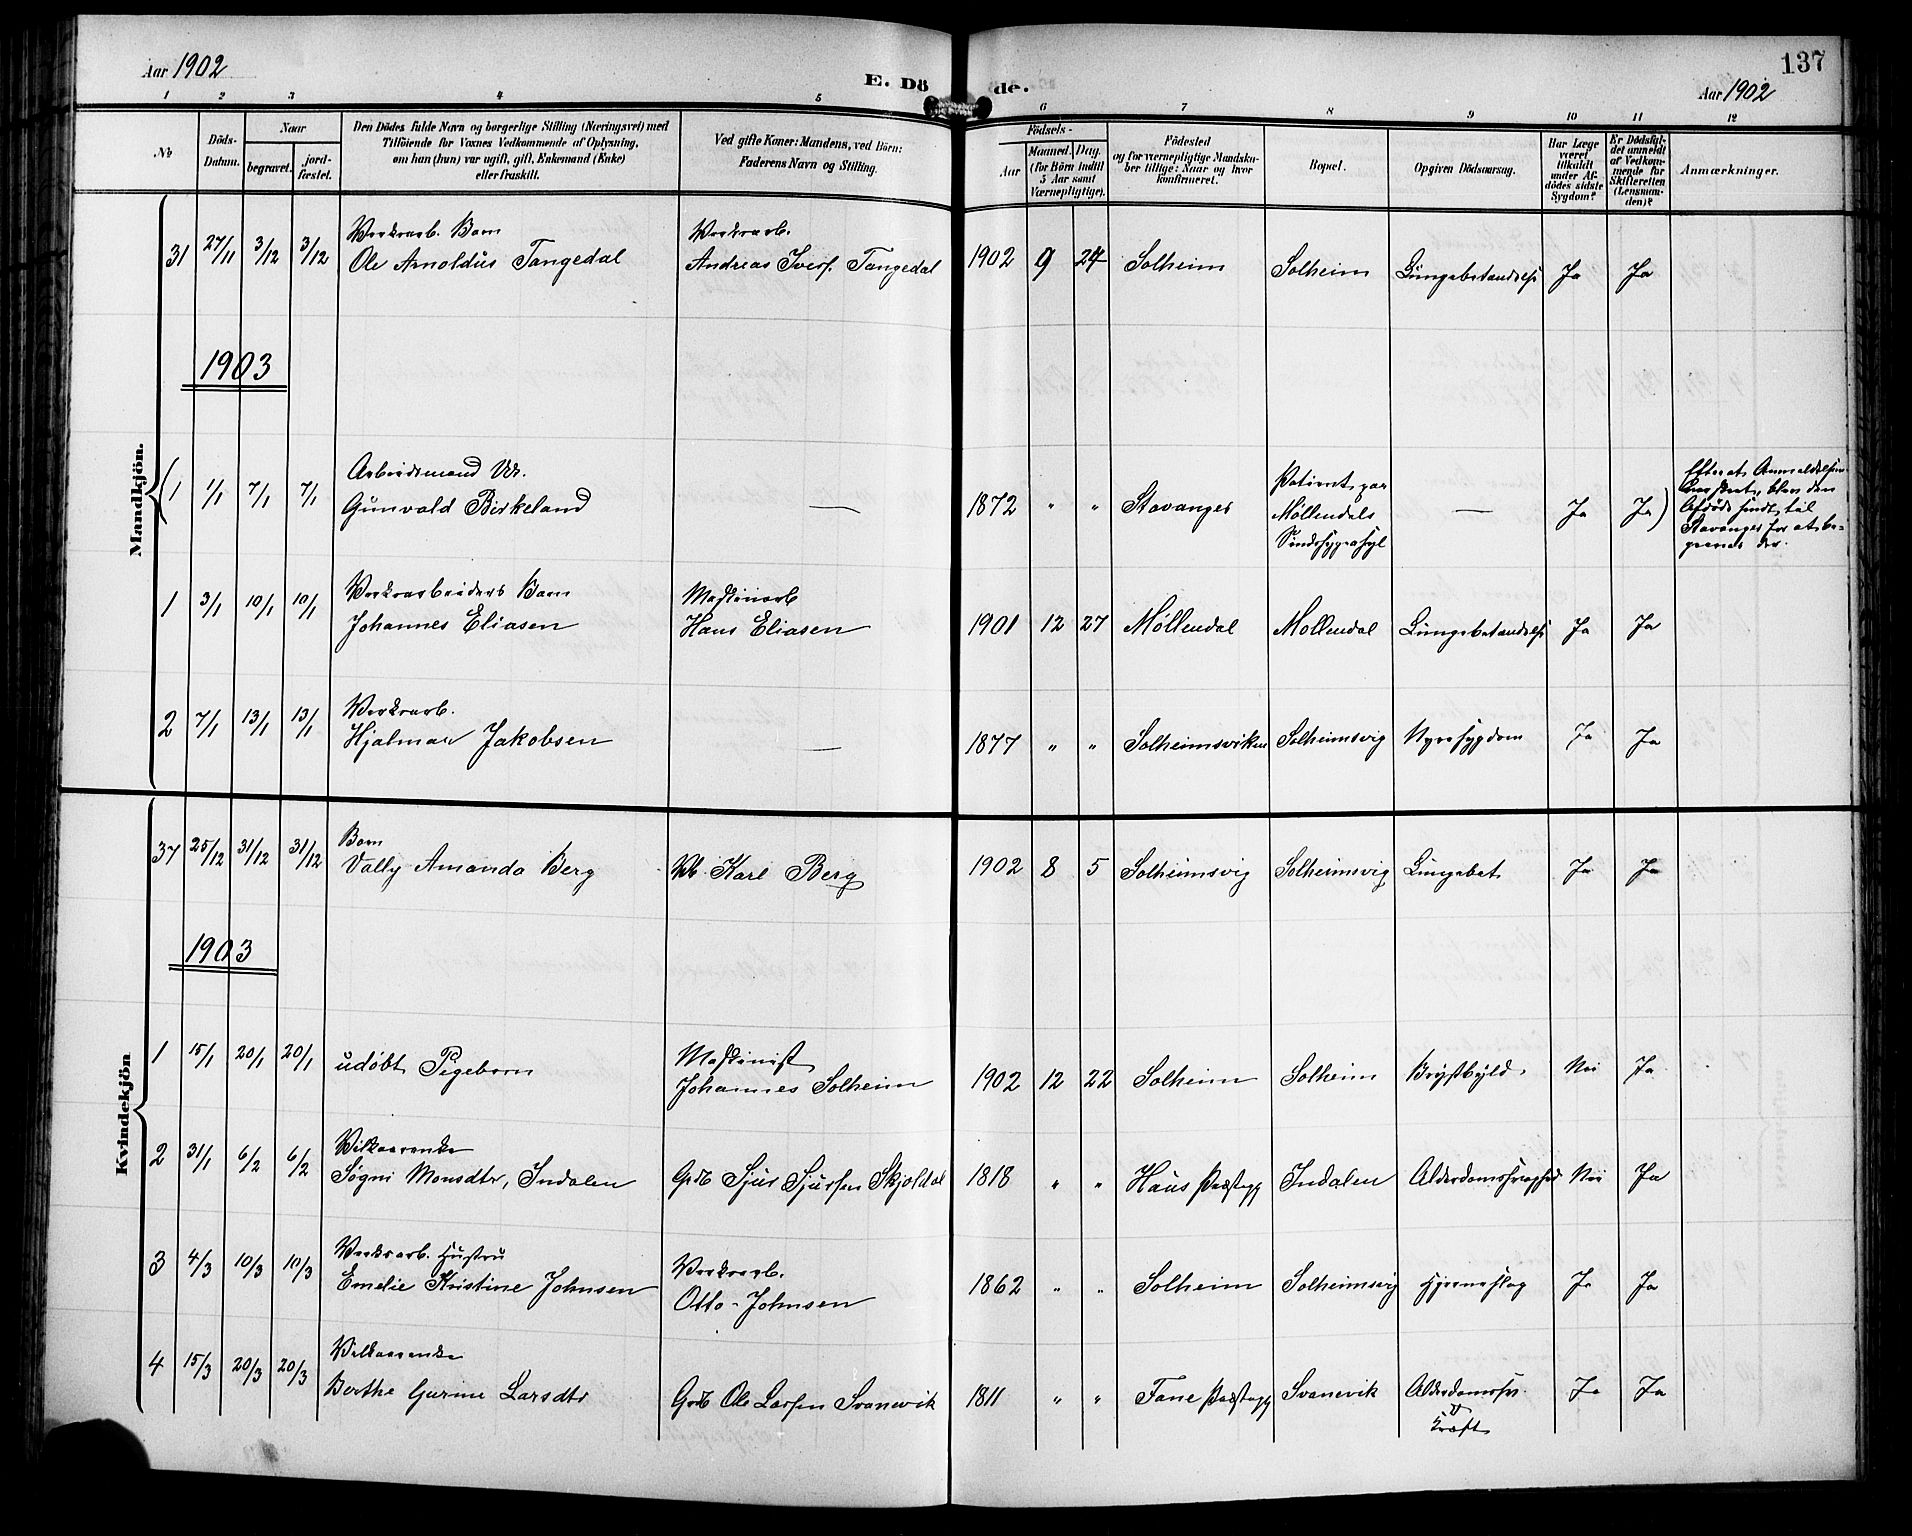 Aar 1902
E. Döde.
137
Aar 1902
1 2 3 4 5 6 7 8 9 10 11 12
No
Döds-Datum.
Naar
begravet.
jord-fæstet.
Den Dödes fulde Navn og borgerlige Stilling (Næringsvei) med
Tilföiende for Voxnes Vedkommende af Oplysning,
om han (hun) var ugift, gift, Enkemand (Enke)
eller fraskilt.
Ved gifte Koner: Mandens, ved Börn:
Faderens Navn og Stilling.
Födsels-
Aar
Maaned. Dag.
(for Börn indtil
5 Aar samt
Værnepligtige).
Födested
og for værnepligtige Mandska-
ber tillige: Naar og hvor
konfirmeret.
Bopæl.
Opgiven Dödsaarsag.
Har Læge
været
tilkaldt
under Af-
dödes sidste
Sygdom?
Er Dödsfal-
det anmeldt
af Vedkom-
mende for
Skifteretten
(Lensman-
den)?
Anmærkninger.
Mandkjön.
31 27/11 3/12 3/12 Verksarb. Barn
Ole Arnoldus Tangedal
Verksarb.
Andreas Ivers. Tangedal
1902 9 24 Solheim Solheim Lungebetændelse Ja Ja
1903
(1 1/1 7/1 7/1 Arbeidsmand
Gunvald Birkeland
—
1872 " " Stavanger
Patient paa
Møllendals
Sindssygeasyl
— Ja Ja)
Efterat Anmeldelsen
har skeet, blev den
Afdøde sendt til
Stavanger for at be-
graves der.
1 3/1 10/1 10/1 Verksarbeiders Barn
Johannes Eliasen
Maskinarb
Hans Eliasen
1901 12 27 Møllendal Møllendal Lungebetændelse Ja Ja
2 7/1 13/1 13/1 Verksarb.
Hjalmar Jakobsen
—
1877 " " Solheimsviken Solheimsvig Nyresygdom Ja Ja
Kvindekjön
37 25/12 31/12 31/12 Barn
Vally Amanda Berg
Vb. Karl Berg
1902 8 5 Solheimsvig Solheimsvig Lungebet. Ja Ja
1903
1 15/1 20/1 20/1 udøbt Pigebarn
Maskinist
Johannes Solheim
1902 12 22 Solheim Solheim Brystbyld. Nei Ja
2 31/1 6/2 6/2 Vilkaarsenke
Søgni Monsdtr, Indalen
Grdb Sjur Sjursen Skjoldal
1818 " " Haus Præstegj Indalen Alderdomssvaghed Nei Ja
3 4/3 10/3 10/3 Verksarb. Hustru
Emelie Kristine Johnsen
Verksarb.
Otto Johnsen
1862 " " Solheim Solheimsvig Hjerneslag Ja Ja
4 15/3 20/3 20/3 Vilkaarsenke
Berthe Gurine Larsdtr
Grdb Ole Larsen Svanevik
1811 " " Fane Præstegj Svanevik
Ja Ja